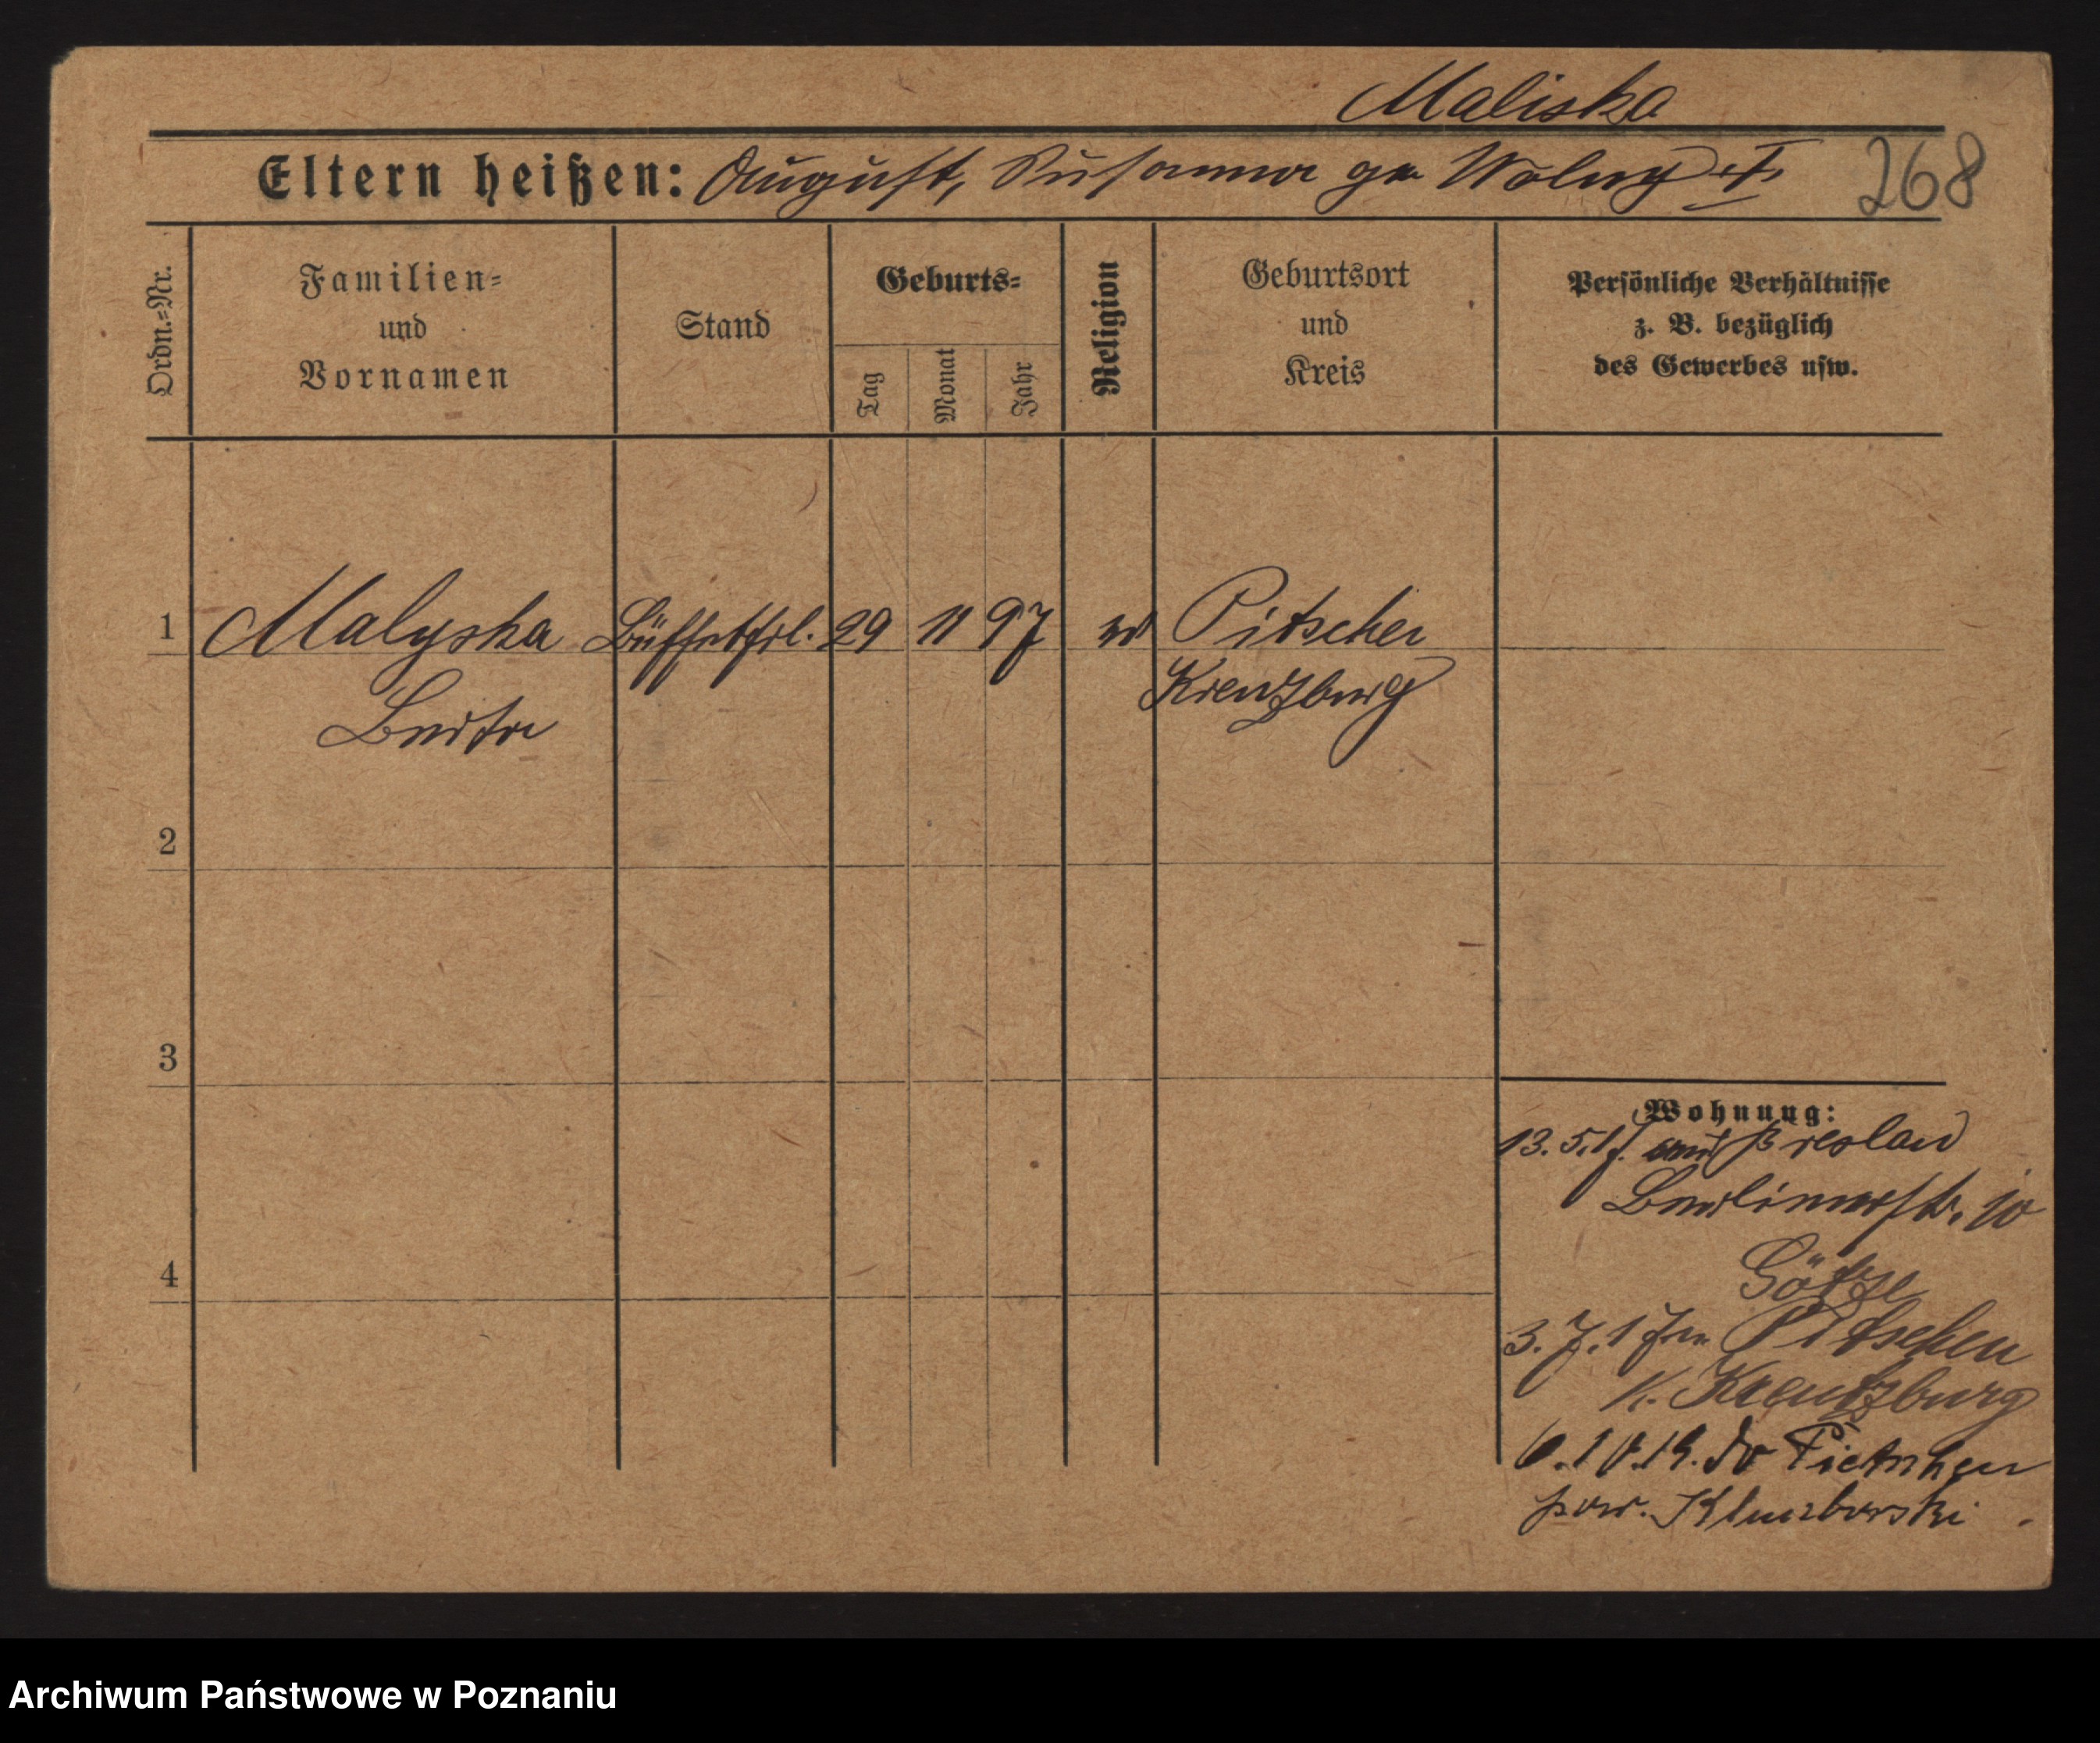 Maliska
Eltern heißen: August, Susanna ge Wolny †
268
Ordn.=Nr.
Familien=
und
Vornamen
Stand
Geburts=
Tag
Monat
Jahr
Religion
Geburtsort
und
Kreis
Persönliche Verhältnisse
z. B. bezüglich
des Gewerbes usw.
1 Malyska Büffetfrl. 29 11 97 Pitschen
Berta Kreuzburg
2
3
4
Wohnung:
13. 5. 17. aus Breslau
Berlinerstr. 10
Götze
3. 7. 17 Pitschen
K. Kreutzburg
6. 10. 19. do Pietschen
pow. Kluczborski
Archiwum Państwowe w Poznaniu